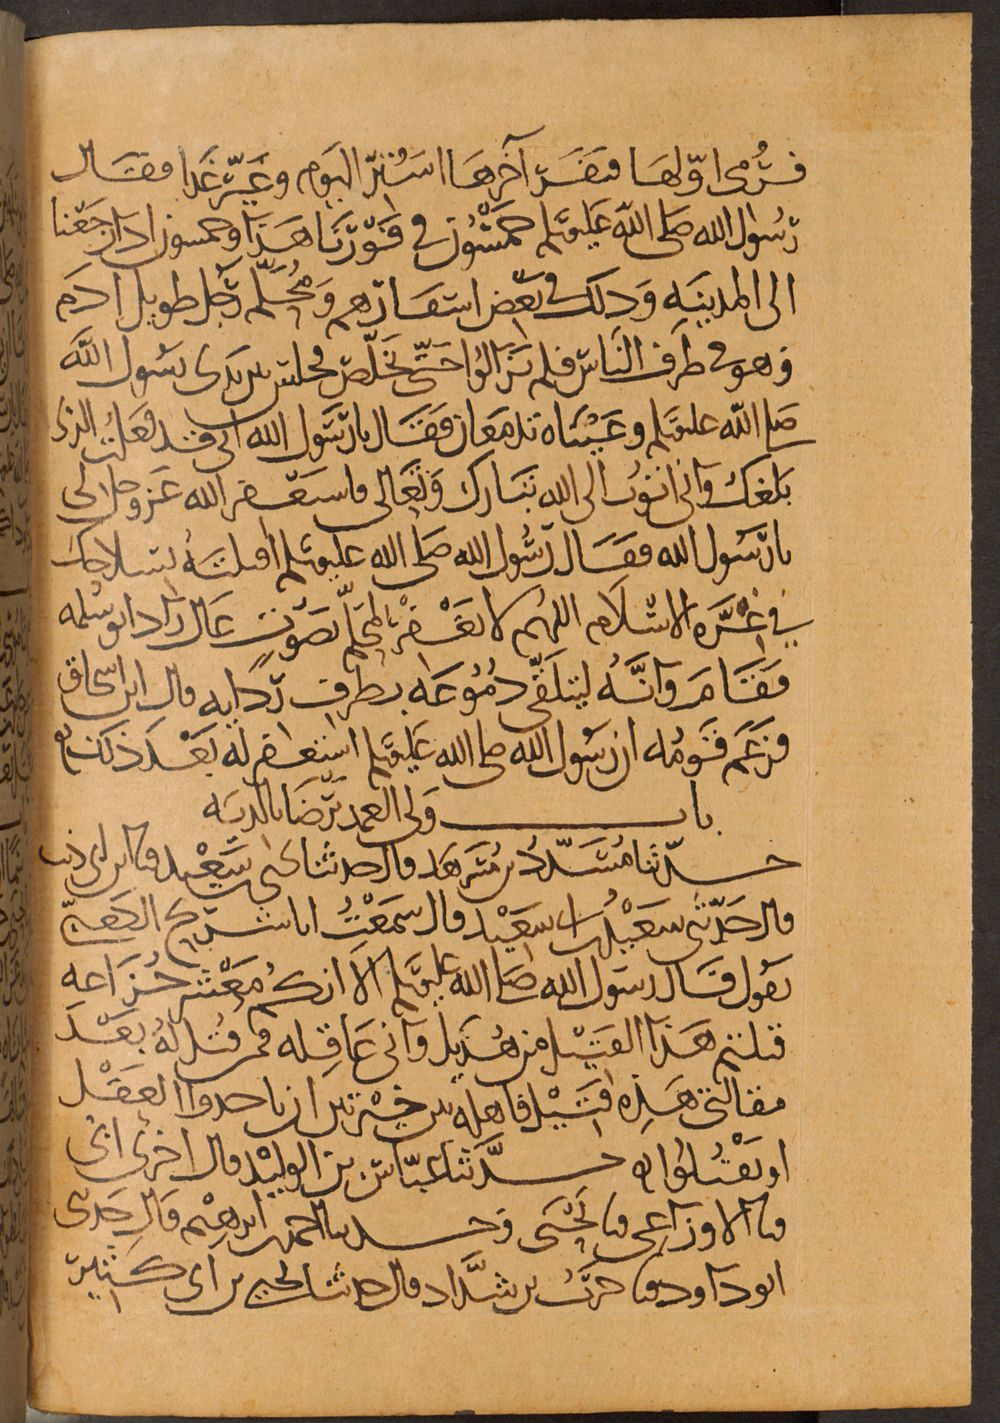 فرُمي اوّلها فنفر آخرها اسنن اليوم وغيّر غدا فقال
رسول الله صلى الله عليه وسلم خمسُون في فورنا هذا وخمسون اذا رجعنا
الى المدينه وذلك في بعض اسفارهم ومُحلّم رجل طويل ادم
وهو في طرف الناس فلم يزالوا حتى تخلّص فجلس بين يدي رسول الله
صلى الله عليه وسلم وعيناه تدمعان فقال يارسول الله اني قد فعلت الذي
بلغك واني اتوب الى الله تبارك وتعالى فاستغفر الله عز وجل لي
يارسول الله فقال رسول الله صلى الله عليه وسلم اقتلته بسلاحك
في غُرّة الاسلام اللهم لا تغفر لمحلّم بصوتٍ عال زاد ابو سلمه
فقام وانّه ليتلقّى دُمُوعه بطرف ردايه قال ابن اسحاق
فزعم قومه ان رسول الله صلى الله عليه وسلم استغفر له بعد ذلك
باب ولي العمد يرضا بالديه
حدّثنا مُسدّدُ بن مسرهد قال حدثنا يحيى بن سعيد قال نا ابن ابي ذيب
قال حدّثني سعيدُ بن ابي سعيد قال سمعتُ ابا شريح الكعبيّ
يقول قال رسول الله صلى الله عليه وسلم الا انكم معشر خُزاعه
قتلتم هذا القتيل من هُذيل واني عاقله فمن قُتل لهُ بعد
مقالتي هذه قتيل فاهله بين خيرتين ان ياخذوا العقل
او يقتُلوا حدّثنا عبّاس بن الوليد قال اخبرني ابي
نا الاوزاعي نا يحيى وحدثنا احمد بن ابرهيم قال حدثني
ابو داود نا حربُ بن شدّاد قال حدثنا يحيى بن ابي كثير